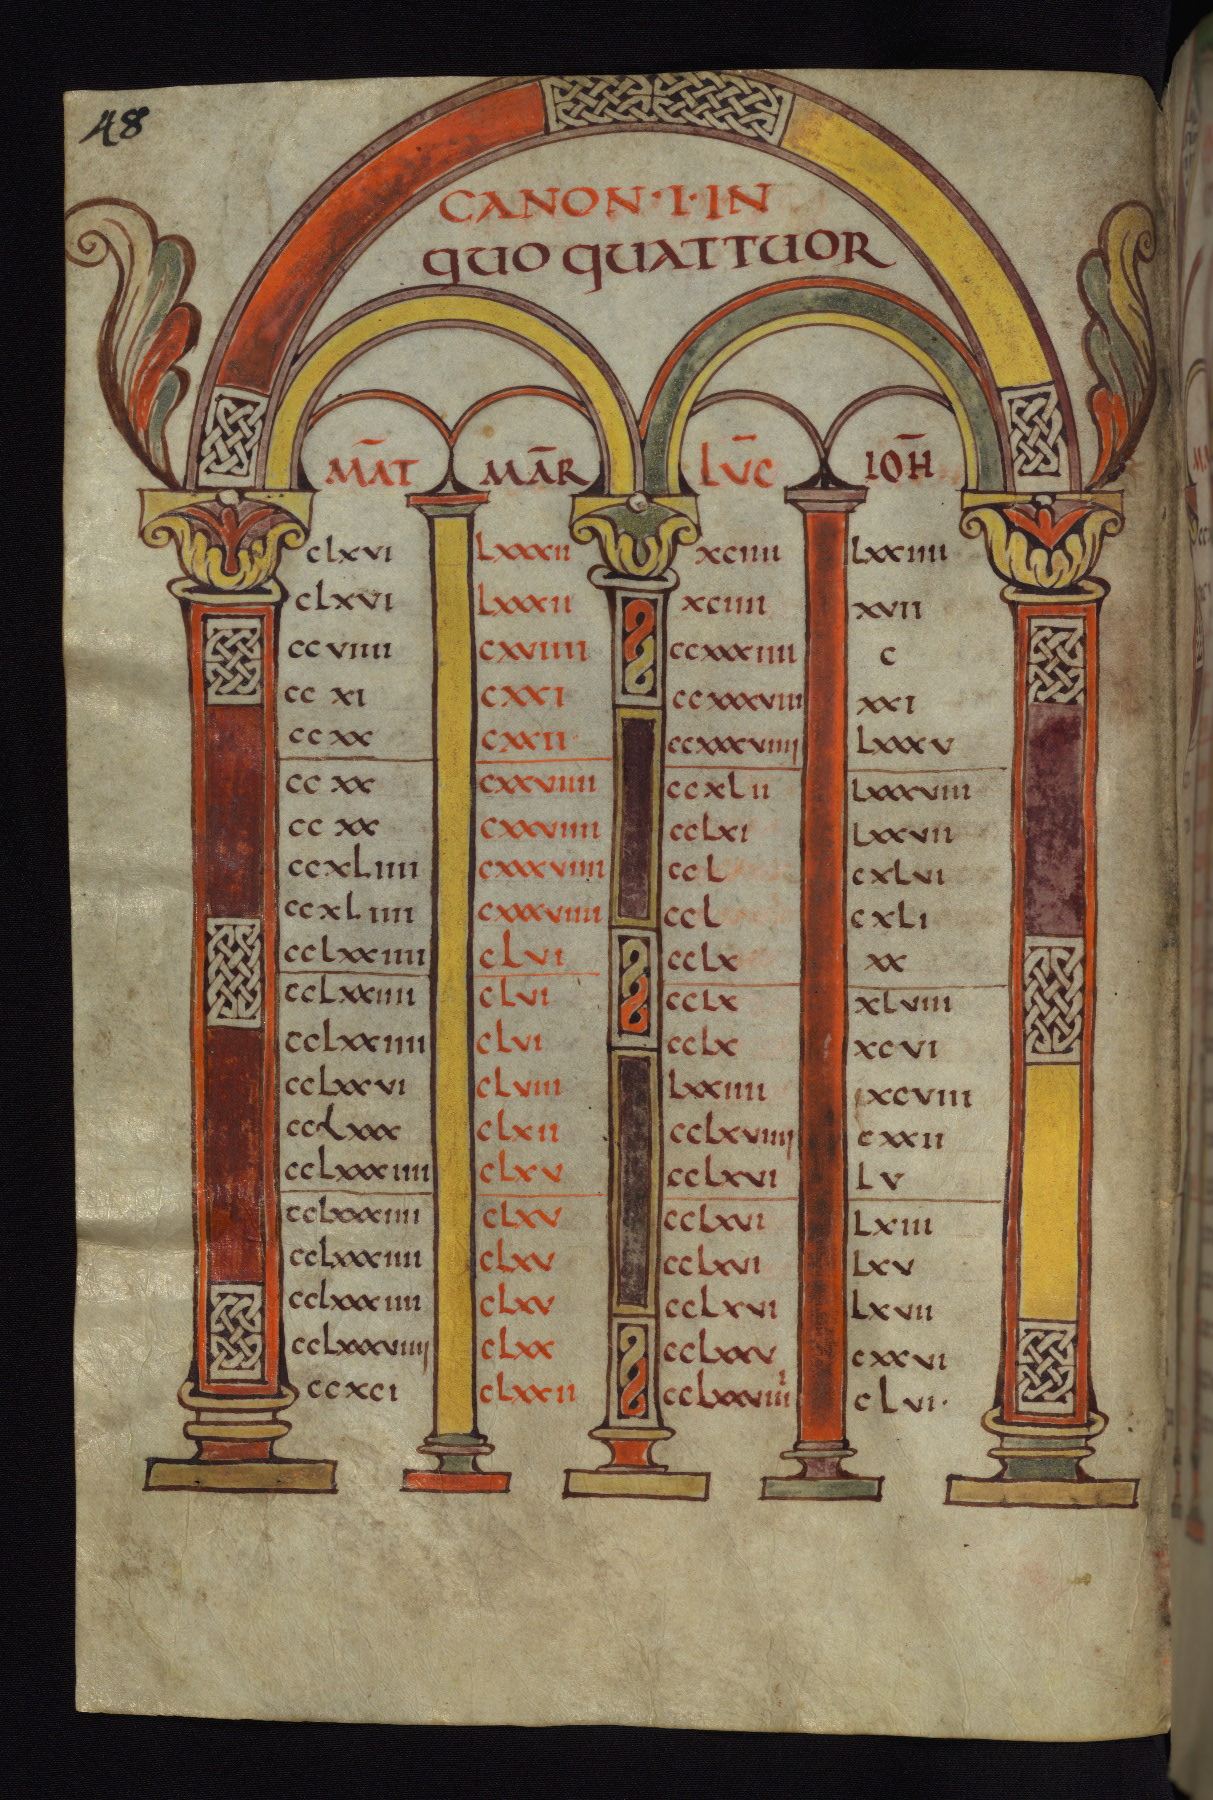 48
CANON·I·IN
QUO QUATTUOR
MAT MAR LUC IOH
clxvi lxxxii xciiii lxxiiii
clxvi lxxxii xciiii xvii
ccviiii cxviiii ccxxxiiii c
cc xi cxxi ccxxxviii xxi
cc xx cxxii· ccxxxviiii lxxxv
cc xx cxxviiii ccxlii lxxxviii
cc xx cxxviiii cclxi lxxvii
ccxliiii cxxxviiii ccl cxlvi
ccxliiii cxxxviiii ccl cxli
cclxxiiii clvi cclx xx
cclxxiiii clvi cclx xlviii
cclxxiiii clvi cclx xcvi
cclxxvi clviii lxxiiii xcviii
cclxxx clxii cclxviiii cxxii
cclxxxiiii clxv cclxvi lv
cclxxxiiii clxv cclxvi lxiii
cclxxxiiii clxv cclxvi lxv
cclxxxiiii clxv cclxvi lxvii
cclxxxviiii clxx cclxxv cxxvi
ccxci clxxii cclxxviiii clvi·